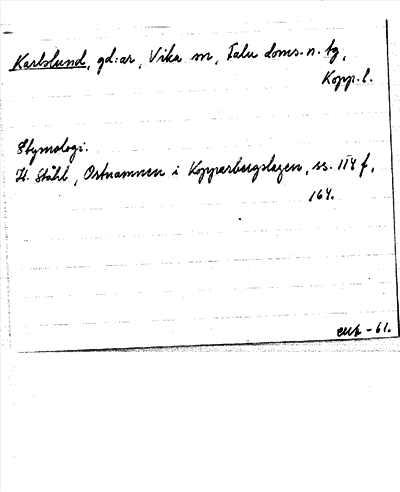 Karlslund, gd:ar, Vika sn, Falu doms.n. tg,
Kopp. l.
Etymologi.
H. Ståhl, Ortnamnen i Kopparbergslagen, ss. 114 f,
164.
-61.